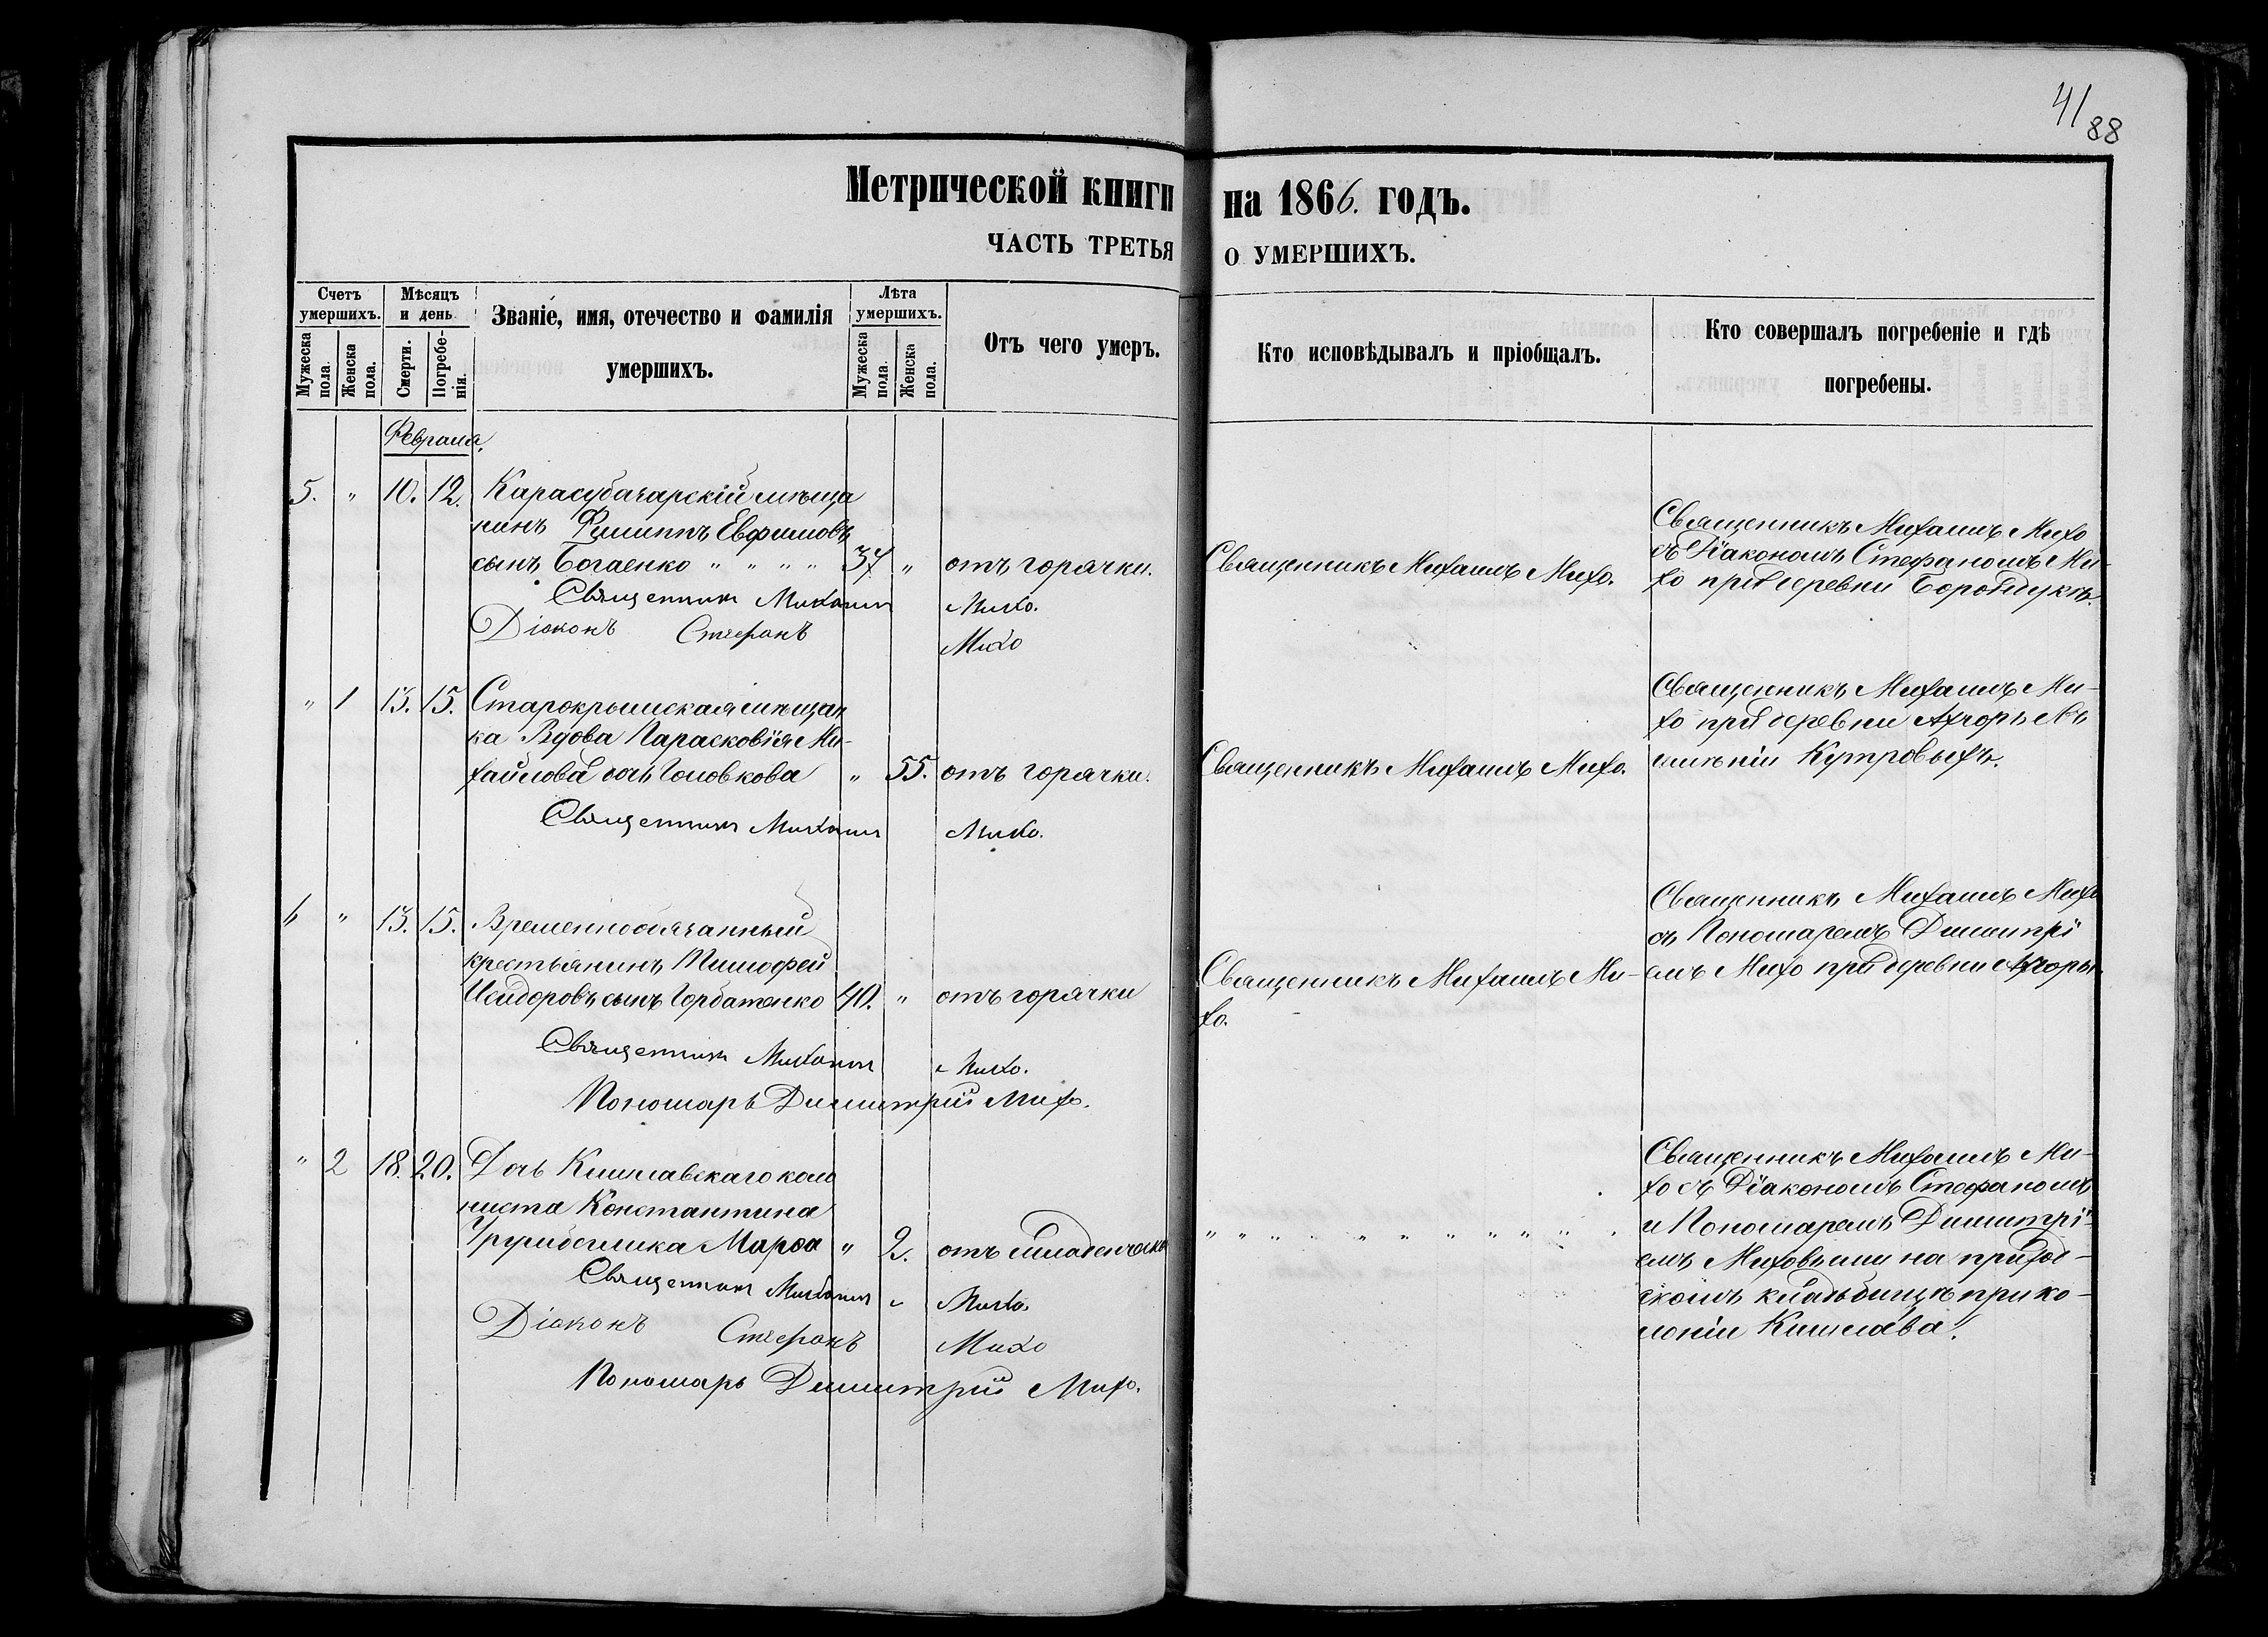 41/88
Метрической книги на 1866. годъ.
ЧАСТЬ ТРЕТЬЯ О УМЕРШИХЪ.
Счетъ умершихъ.
Мужеска пола.
Женска пола.
Мѣсяцъ и день
Смерти.
Погребенія.
Званіе, имя, отечество и фамилія умершихъ.
Лѣта умершихъ.
Мужеска пола.
Женска пола.
Отъ чего умеръ.
Кто исповѣдывалъ и пріобщалъ.
Кто совершалъ погребеніе и гдѣ погребены.
Февраля.
5. " 10. 12. Карасубазарскій мѣща
нинъ Филиппъ Евфимовъ
сынъ Богаенко " " " " 37 " отъ горячки.
Священникъ Михаилъ Михо.
Священникъ Михаилъ Михо
съ Діакономъ Стефаномъ Ми-
хо при деревни
Священникъ Михаилъ Михо.
Діаконъ Стефанъ Михо
" 1 13. 15. Старокрымская мѣщан
ка Вдова Парасковія Ми-
хайлова дочь Головкова " 55. отъ горячки.
Священникъ Михаилъ Михо.
Священникъ Михаилъ Ми-
хо при деревни въ
имѣніи
Священникъ Михаилъ Михо.
6 " 13. 15. Временнообязанный
крестьянинъ Тимофей
Исидоровъ сынъ Горбатенко 40. " отъ горячки
Священникъ Михаилъ Ми-
хо.
Священникъ Михаилъ Михо
съ Пономаремъ Димитрі
емъ Михо при деревни
Священникъ Михаилъ Михо.
Пономарь Димитрій Михо.
" 2 18. 20. Дочь Кишлавскаго коло
ниста Константина
Марфа " 2. отъ младенческой
" " " " " " " " "
Священникъ Михаилъ Ми-
хо съ Діакономъ Стефаномъ
и Пономаремъ Димитрі-
емъ Миховыми на приход-
скомъ кладбищѣ при ко-
лоніи Кишлава.
Священникъ Михаилъ Михо.
Діаконъ Стефанъ Михо
Пономарь Димитрій Михо.